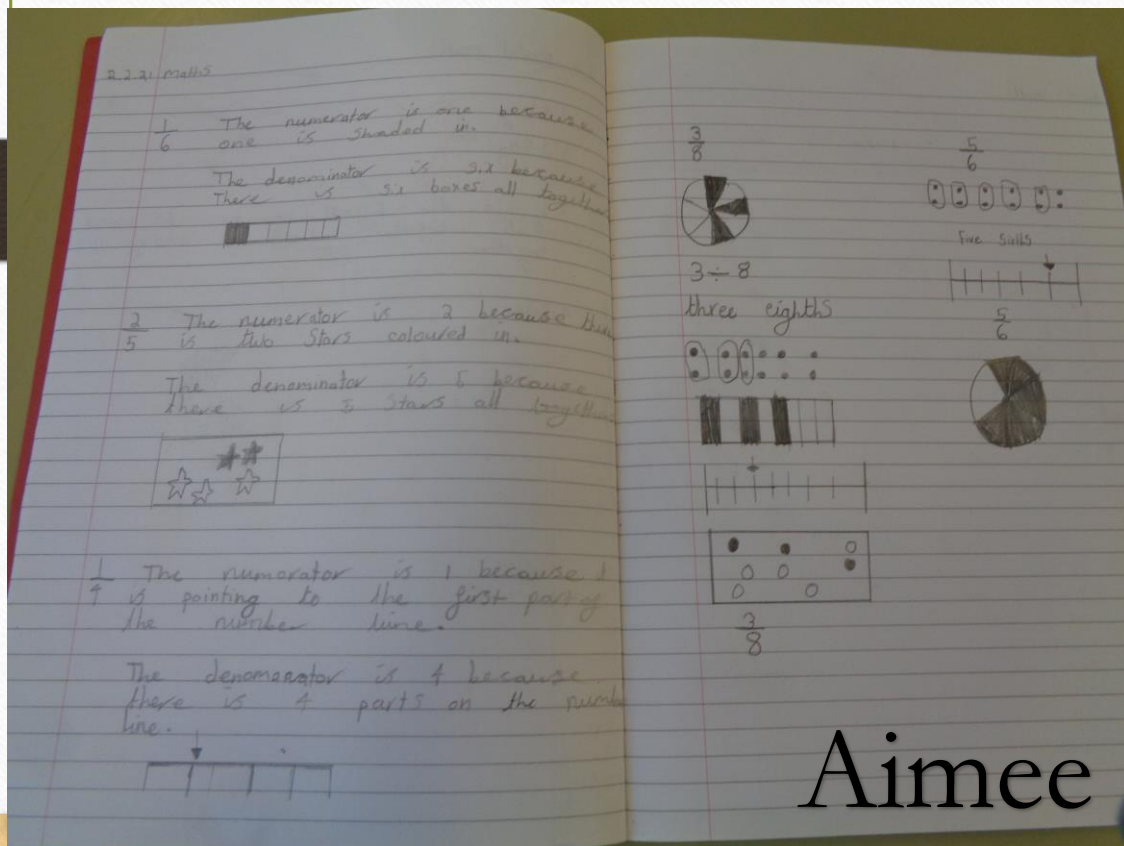 2.2.21 maths
1/6 The numerator is one because
one is shaded in.
The denominator is six because
there is six boxes all together
2/5 The numerator is 2 because there
is two stars coloured in.
The denominator is 5 because
there is 5 stars all together
1/4 The numorator is 1 because I
is pointing to the first part of
the number line.
The is 4 because
there is 4 parts on the number
line.
3/8
3 ÷ 8
three eighths
3/8
5/6
five
5/6
Aimee